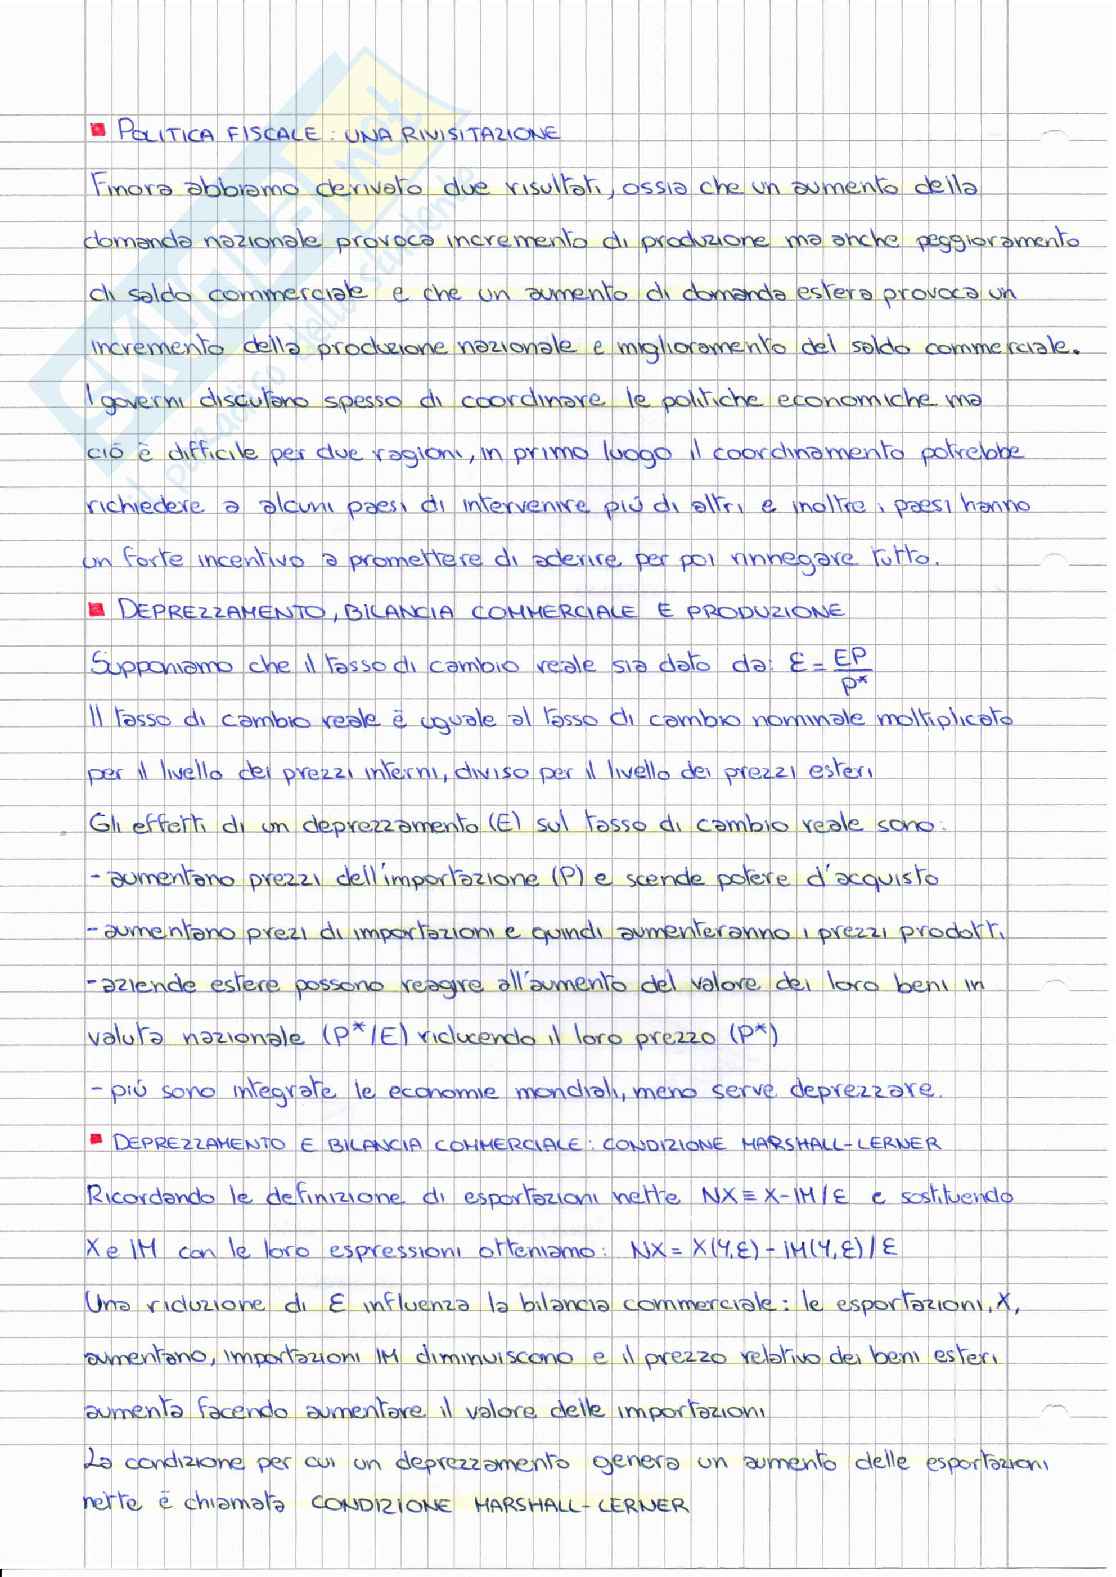 POLITICA FISCALE: UNA RIVISITAZIONE
Finora abbiamo derivato due risultati, ossia che un aumento della
domanda nazionale provoca incremento di produzione ma anche peggioramento
di saldo commerciale e che un aumento di domanda estera provoca un
incremento della produzione nazionale e miglioramento del saldo commerciale.
I governi discutono spesso di coordinare le politiche economiche ma
ciò è difficile per due ragioni, in primo luogo il coordinamento potrebbe
richiedere a alcuni paesi di intervenire più di altri e inoltre i paesi hanno
un forte incentivo a promettere di aderire per poi rinnegare tutto.
DEPREZZAMENTO, BILANCIA COMMERCIALE E PRODUZIONE
Supponiamo che il tasso di cambio reale sia dato da: ε = EP/P*
Il tasso di cambio reale è uguale al tasso di cambio nominale moltiplicato
per il livello dei prezzi interni, diviso per il livello dei prezzi esteri
Gli effetti di un deprezzamento (E) sul tasso di cambio reale sono:
- aumentano prezzi dell'importazione (P) e scende potere d'acquisto
- aumentano prezi di importazioni e quindi aumenteranno i prezzi prodotti
- aziende estere possono reagire all'aumento del valore dei loro beni in
valuta nazionale (P*/E) riducendo il loro prezzo (P*)
- più sono integrate le economie mondiali, meno serve deprezzare.
DEPREZZAMENTO E BILANCIA COMMERCIALE: CONDIZIONE MARSHALL-LERNER
Ricordando le definizione di esportazioni nette NX ≡ X-IM/ε e sostituendo
X e IM con le loro espressioni otteniamo: NX = X(Y,ε) - IM(Y,ε)/ε
Una riduzione di ε influenza la bilancia commerciale: le esportazioni, X,
aumentano, importazioni IM diminuiscono e il prezzo relativo dei beni esteri
aumenta facendo aumentare il valore delle importazioni
La condizione per cui un deprezzamento genera un aumento delle esportazioni
nette è chiamata CONDIZIONE MARSHALL-LERNER
SKUOLA.net
il paradiso dello studente